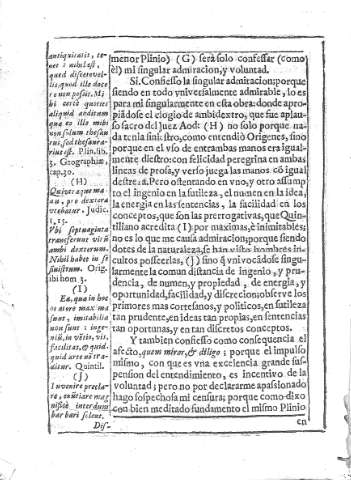 antiquitatis, te-
net: nihil est,
quod
lis, quod illa doce
re non possit. Mi
hi certè quoties
aliquid
que ex illo mihi
non solum thesau
rus, sed thesaura-
rius est. Plin. lib.
3. Geographiae,
cap. 30.
(H)
Qui
nu, pro dextera
vtebatur. Judic.
c, 15.
Vbi septuaginta
transferunt virũ
ambi dexterum.
Nihil habet in se
sinistrum. Orig.
ibi hom. 3.
(I)
Ea, qua in hoc
maxi ma
sunt, imitabilia
non sunt: inge-
niũ, in vẽtio, vis,
facilitas, & quid-
quid arte
ditur. Quintil.
(J)
Invenire præcla-
rè, enũtiare mag
nificè interdum
barbari solent.
Dis-
menor Plinio) (G) serà solo confessar (como
èl) mi singular admiracion, y voluntad.
Si. Confiesso la singular admiracion; porque
siendo en todo vniversalmente admirable, lo es
para mi singularmente en esta obra: donde apro-
piàdose el elogio de ambidextro, que fue aplau-
so sacro del Juez Aod: (H) no solo porque na-
da tenia sinistro, como entendiò Origenes, sino
porque en el vso de entrambas manos era igual-
mente diestro: con felicidad peregrina en ambas
lineas de prosa, y verso juega las manos cõ igual
destreza. Pero ostentando en vno, y otro assump-
to el ingenio en la sutileza, el numen en la idea,
la energia en las sentencias, la facilidad en los
conceptos, que son las prerrogativas, que Quin-
tiliano acredita (I) por maximas, è inimitables;
no es lo que me causa admiracion; porque siendo
dotes de la naturaleza, se han visto hombres in-
cultos posseerlas, (J) sino q̃ vnivocàdose singu-
larmente la comun distancia de ingenio, y pru-
dencia, de numen, y propiedad, de energia, y
oportunidad, facilidad, y discrecion; observe los
primores mas cortesanos, y politicos, en sutileza
tan prudente, en ideas tan proprias, en sentencias
tan oportunas, y en tan discretos conceptos.
Y tambien confiesso como consequencia el
afecto, quem miror, & diligo; porque el impulso
mismo, con que es vna excelencia grande sus-
pension del entendimiento, es incentivo de la
voluntad; pero no por declararme apasionado
hago sospechosa mi censura; porque como dixo
con bien meditado fundamento el mismo Plinio
en